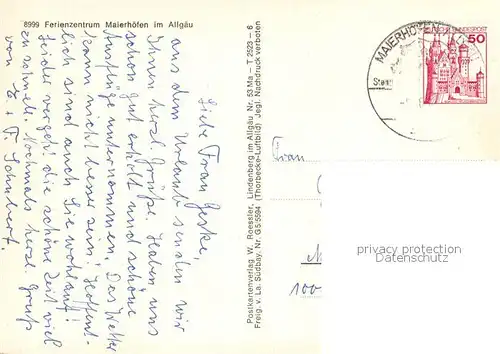 8999 Ferienzentrum Maierhöfen im Allgäu
Liebe Frau Jeske,
aus dem Urlaub senden wir
Ihnen herzl. Grüße. Haben uns
schon gut erholt und schöne
Ausflüge unternommen. Das Wetter
kann nicht besser sein. Hoffent-
lich sind auch Sie wohlauf!
Leider vergeht die schöne Zeit viel
zu schnell. Nochmals herzl. Gruß
von E. + F. Schubert.
Postkartenverlag W. Roessler, Lindenberg im Allgäu Nr. 53 Ma — T 2623 – 6
Freig. v. La. Südbay. Nr. G5/5594 (Thorbecke-Luftbild) Jegl. Nachdruck verboten
MAIERHÖFEN
DEUTSCHE BUNDESPOST
50
Frau
100
privacy protection
Datenschutz